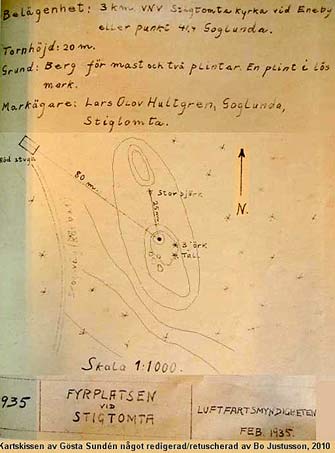 Belägenhet: 3 km VNV Stigtomta kyrka vid Eneby
eller punkt 41,4 Goglunda.
Tornhöjd: 20 m.
Grund: Berg för mast och två plintar. En plint i lös
mark.
Markägare: Lars Olov Hultgren, Goglunda,
Stiglomta.
Röd stuga
80 m.
Stor björk
25 m
Björk
Tall
N.
Skala 1:1000.
1935
FYRPLATSEN
VID
STIGTOMTA
LUFTFARTSMYNDIGHETEN
FEB. 1935.
Kartskissen av Gösta Sundén något redigerad/retuscherad av Bo Justusson, 2010